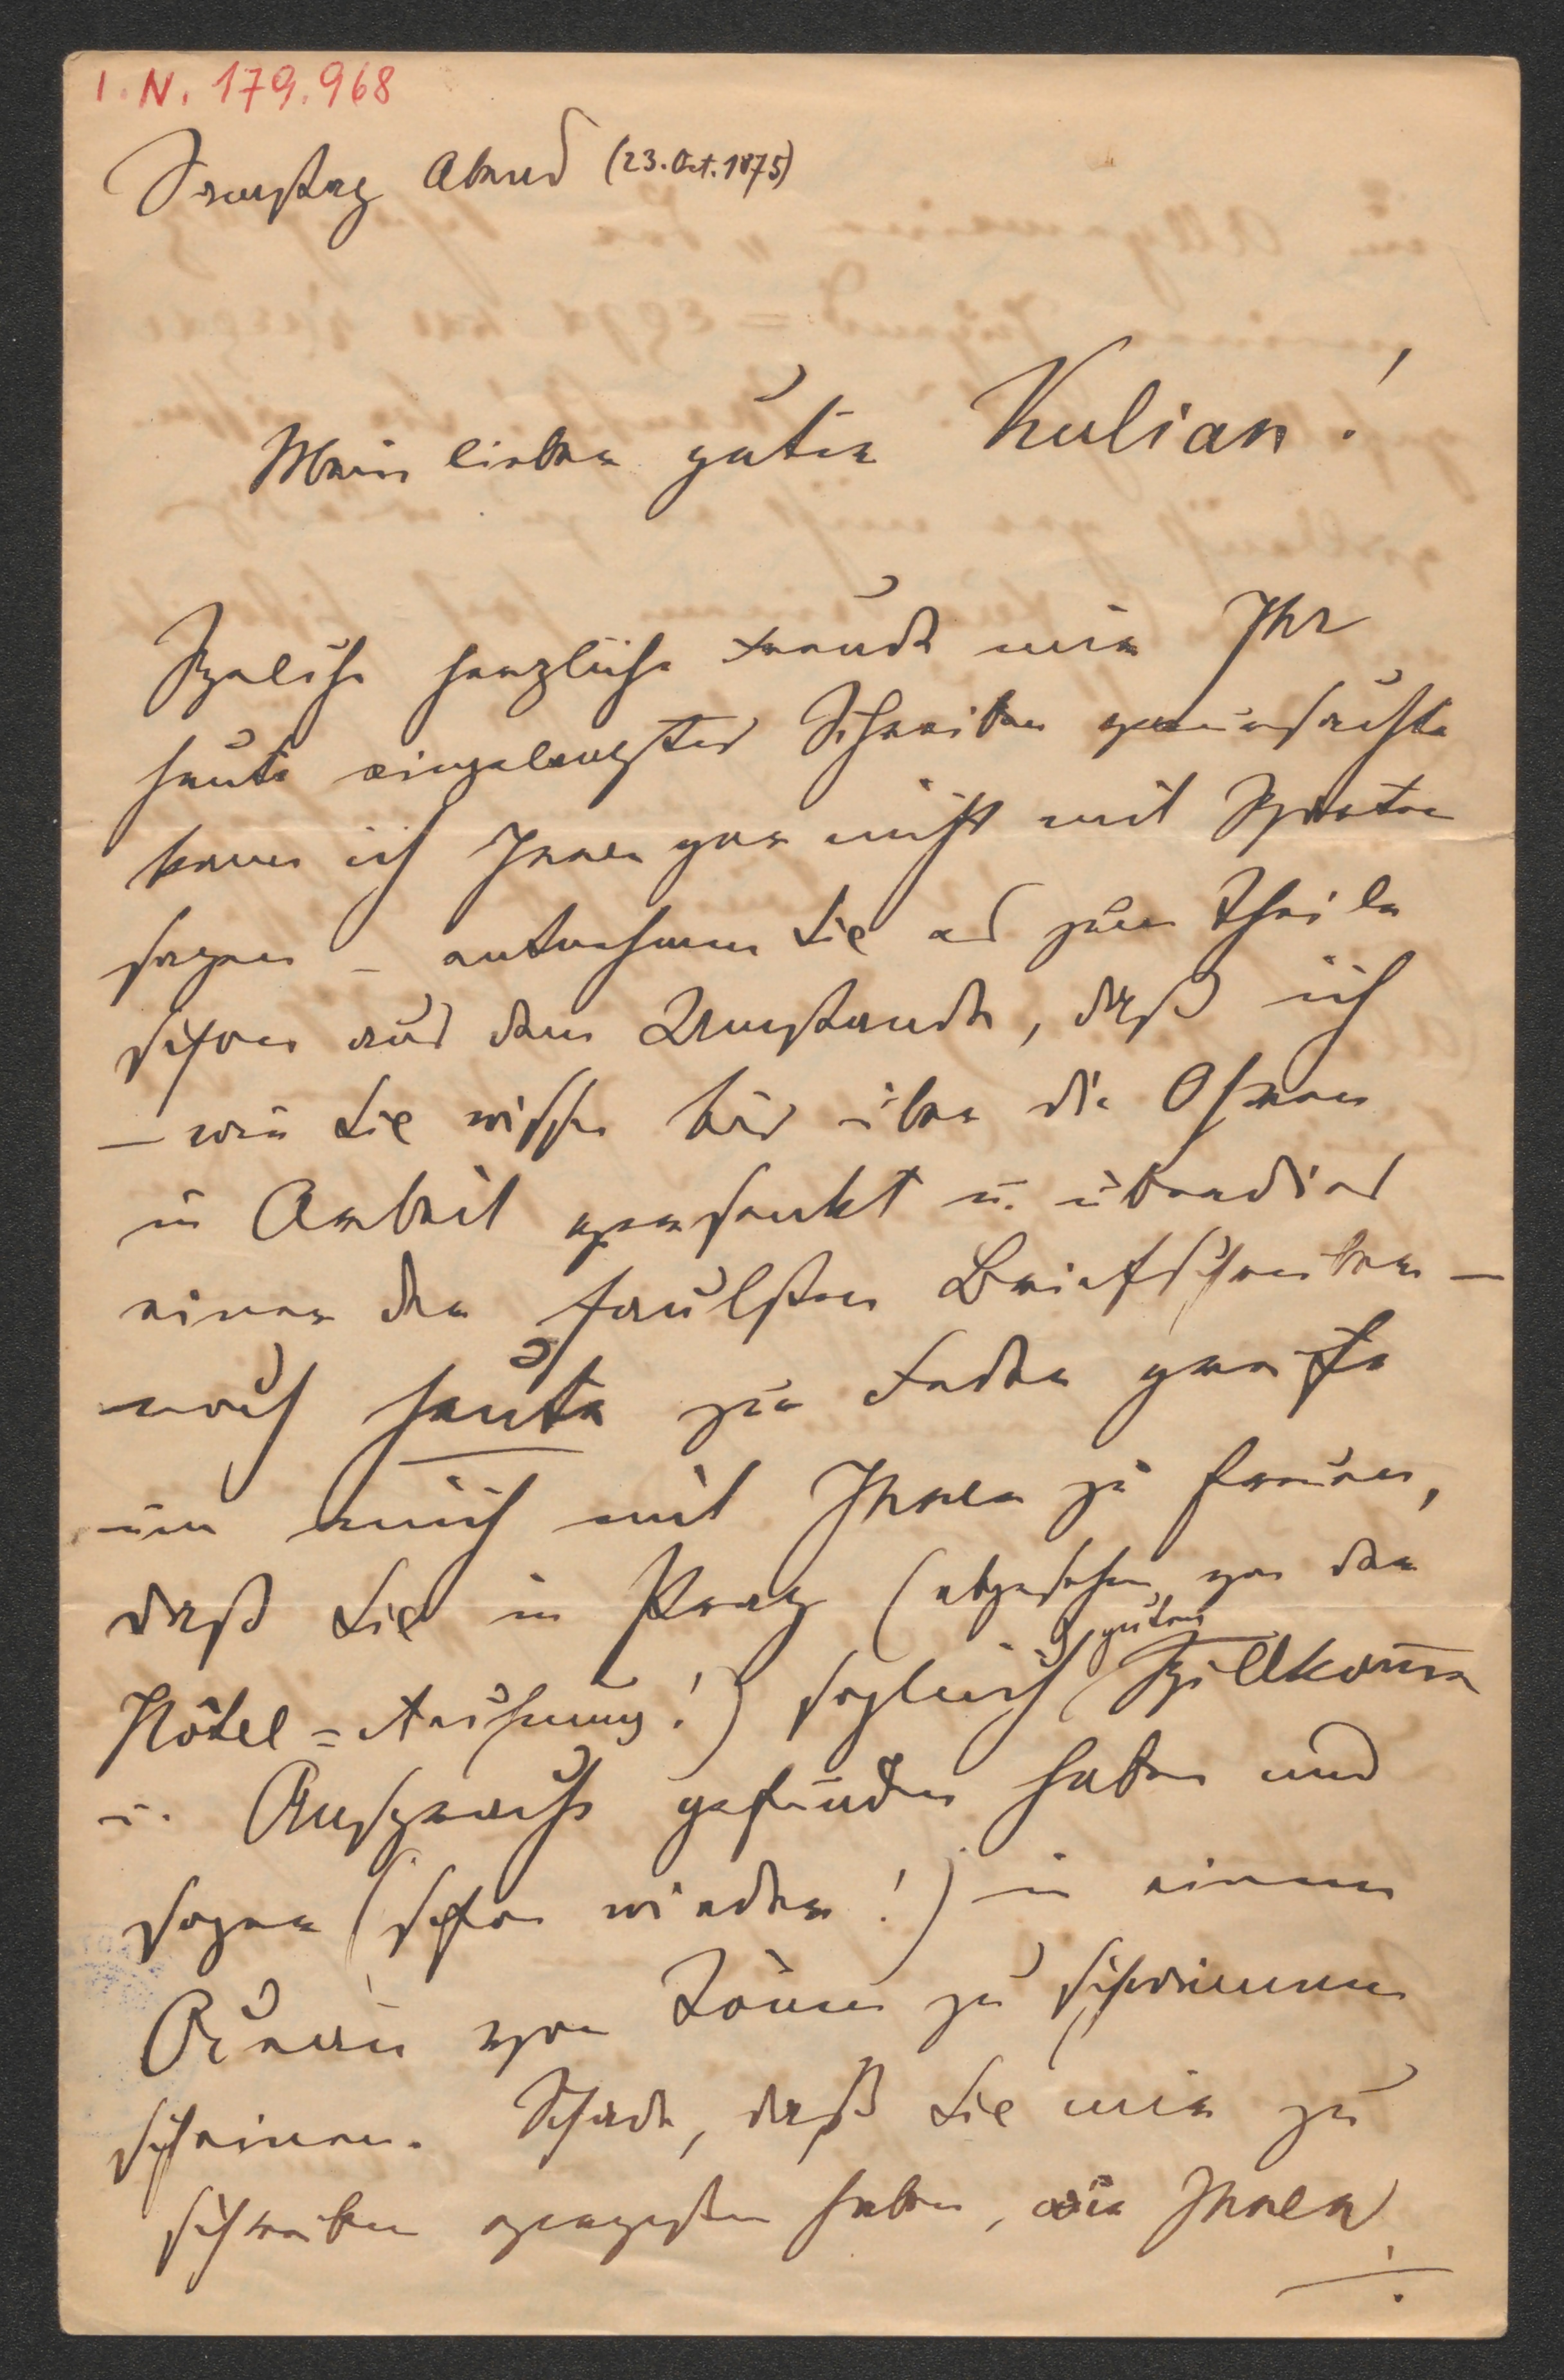 I. N. 179.968
Samstag Abend (23. Oct. 1875)
Mein lieber guter Kulian!
Welche herzliche Freude mir Ihr
heute eingelangtes Schreiben verursachte
kann ich Ihnen gar nicht mit Worten
sagen – entnehmen Sie es zum Theile
schon aus dem Umstande, daß ich
– wie Sie wissen bis über die Ohren
in Arbeit versenkt u. überdies
einer der faulsten Briefschreiber –
noch heute zur Feder greife
um mich mit Ihnen zu freuen,
daß Sie in Prag (abgesehen von der
Hôtel-Rechnung!) sogleich guten Willkomm
u. Ansprache gefunden haben und
sogar (schon wieder!) in einem
von Tönen zu schwimmen
scheinen. Schade, daß Sie mir zu
schreiben vergessen haben, wie Ihnen